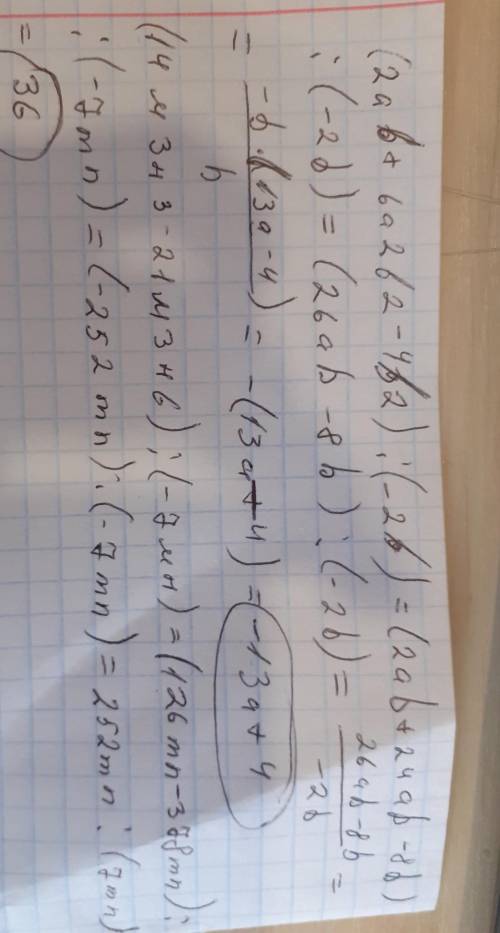 (2ab + 6a2b2 - 4b2) : (-2b) = (2ab + 24ab - 8b)
: (-2b) = (26ab - 8b) : (-2b) = 26ab - 8b / -2b =
= -b · (13a - 4) / b = -(13a + 4) = (-13a + 4
(14м3н3 - 21м3н6) : (-7мн) = (126mn - 378mn) :
: (-7mn) = (-252mn) : (-7mn) = 252mn : (7mn)
= 36